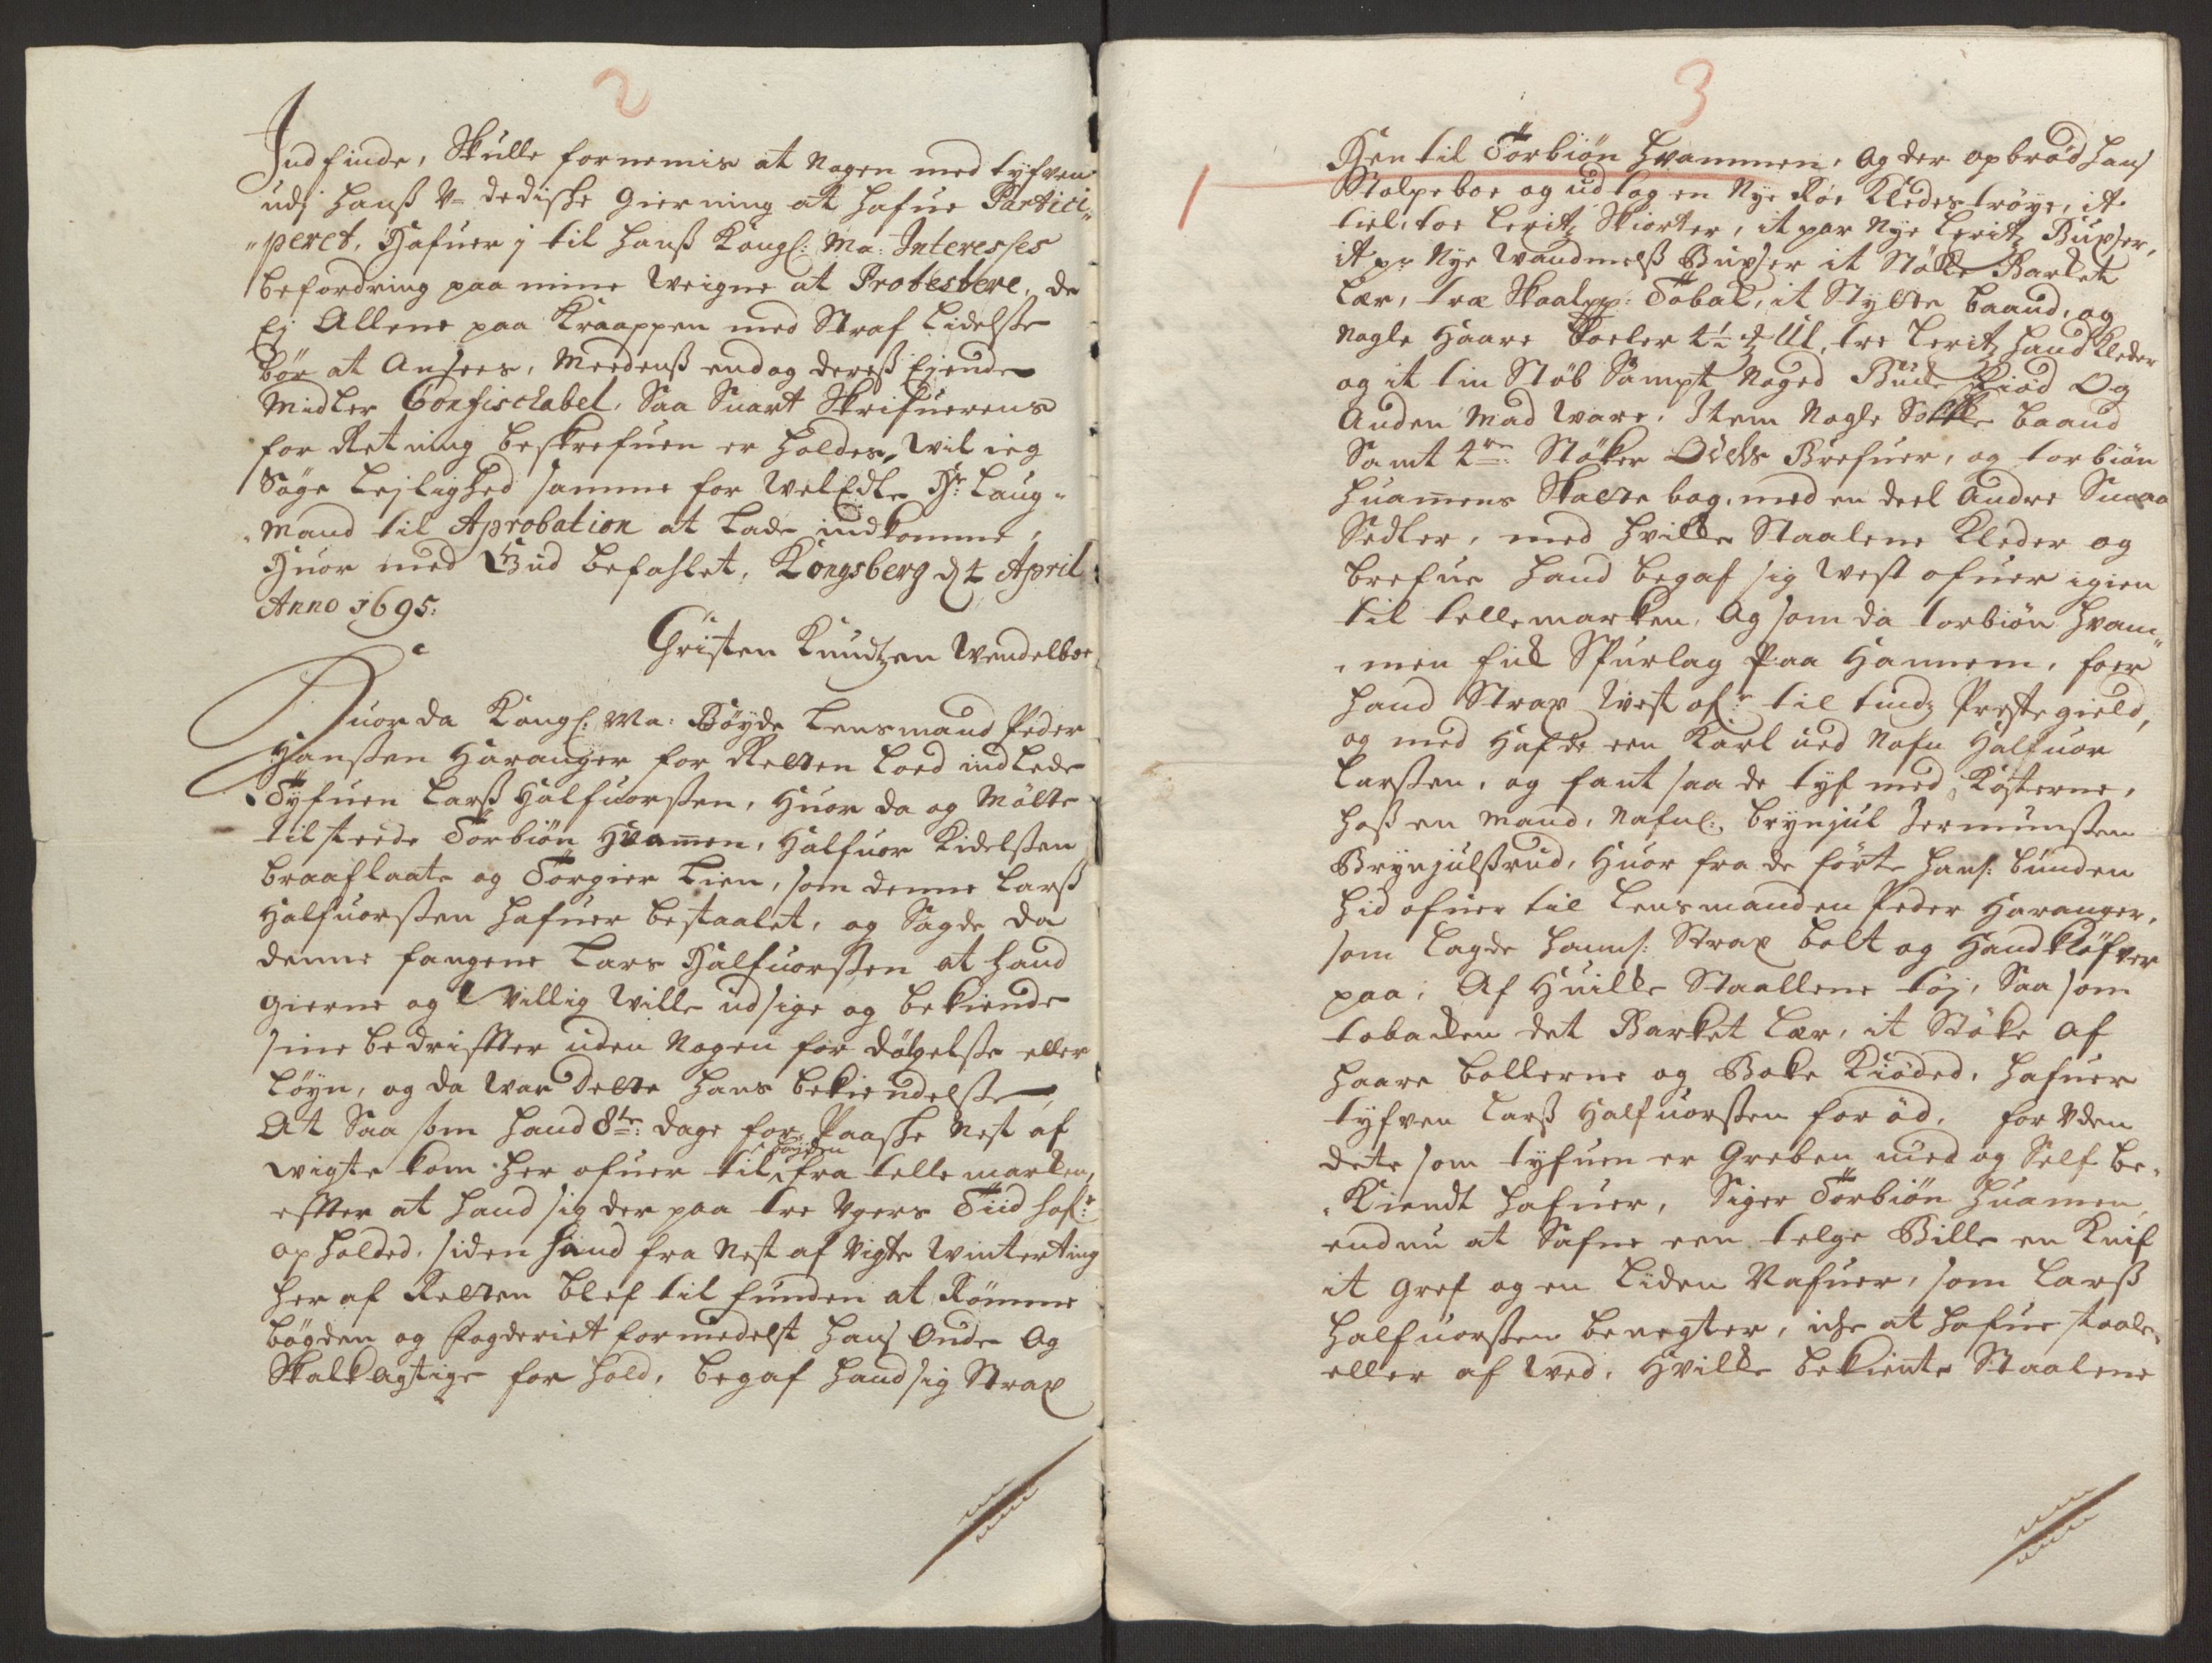 2
Indfinde, Skulle fornemis at Nogen med tyfven
udj hanß V= dedishe Gierning at hafue Partici„
„peret, Hafuer j til hanß Kongl: Ma: Interesses
befordring paa mine Weigne at Protestere, de
Ej Allene paa Kraappen med Straf Lidelße
bør at Ansees, Meedenß endog dereß Eiende
Midler Confisckabel. Saa Snart Skrifuerens
for Retning beskrefuen er holdes, Wil ieg
Søge Lejlighed samme for WelEdle Hr: Laug„
„Mand til Aprobation at Lade indkomme,
Huor med Gud befahlet, Kongsberg d 4 April
Anno 1695:
Christen Knudtzen Wendelboe
Huor da Kongl: Ma: Bøyde Lensmand Peder
Hanßen Haranger for Retten Loed indLede
Tyfuen Larß Halfuorßen, Huor da og Mötte
tilstede Torbiön Huamen, Halfuor Kidelßen
braaflaate og Torgier Lien, som denne Larß
Halfuorßen hafuer bestaalet, og Sagde da
denne fangene Lars Halfuorßen at hand
gierne og Villig Wille udsige og bekiende
sine bedriffter uden Nogen for dølgelße eller
Løyn, og da War Dette hans bekiendelße,
At Saa som hand 8te: dage for Paaske Nest af
wigte kom her ofuer til bøyden fra tellemarken,
effter at hand sig der paa tre Vgers Tiid hafr:
opholded, siden hand fra Nest af Vigte Winterting
her af Retten blef til funden at Rømme
bøgden og Fogderiet formedelst hans Onde Og
Skalkagtige for hold, begaf hand sig Strax
3
1
Hen til Torbiön Hvammen, Og der opbrød hans
Stolpeboe og udtog en Nye Røe Kledes trøye, it
tiel, toe Leritz Skiorter, it par Nye Leritz Buxser,
it pr: Nye Wandmelß Buxser it Støkke Barket
Lær, træ Skaalpp: Tobak, it Stykke baand, og
Nogle Haare boeler 4½ ℔ Ul, tre Leritz hand kleder
og it tin Støb Sampt Noged Bukke Kiød Og
Anden Mad Ware. Item Nogle Sokke baand
Samt 4re: Støker Odels Brefuer, og torbiön
Huamens Skatte bog, med en deel Andre Smaa
Sedler, med hvilke Staalene Kleder og
brefue hand begaf sig West ofuer igien
til tellemarken, Og som da torbiön Hvam„
„men fik SPurlag Paa Hannem, foer
hand Strax West ofr: til tindz Prestegield,
og med Hafde een Karl ued Nafn Halfuor
Larßen, og fant saa de tyf med Kosterne,
hoß en Mand, Nafnl: brynjul Jermunßen
Brynjulßrud, Huor fra de førte hanß: bunden
hid ofuer til Lensmanden Peder Haranger,
som Lagde hannß: Strax bolt og Hand kløfver
paa; Af Huilke Staallene tøj, Saa som
tobakken det Barket Lær, it Støke af
Haare bollerne og Boke Kiøded, hafuer
tyfven Larß Halfuorßen for ød, for Vden
dete som tyfuen er Greben med og Self be„
„Kiendt hafuer, Siger Torbiön Huamen,
endnu at Safne een telge Bille en Knif
it Gref og en Liden Nafuer, som Larß
halfuorßen benegter, iche at hafue staale„
eller af Wed. Hvilke bekiente Staalene